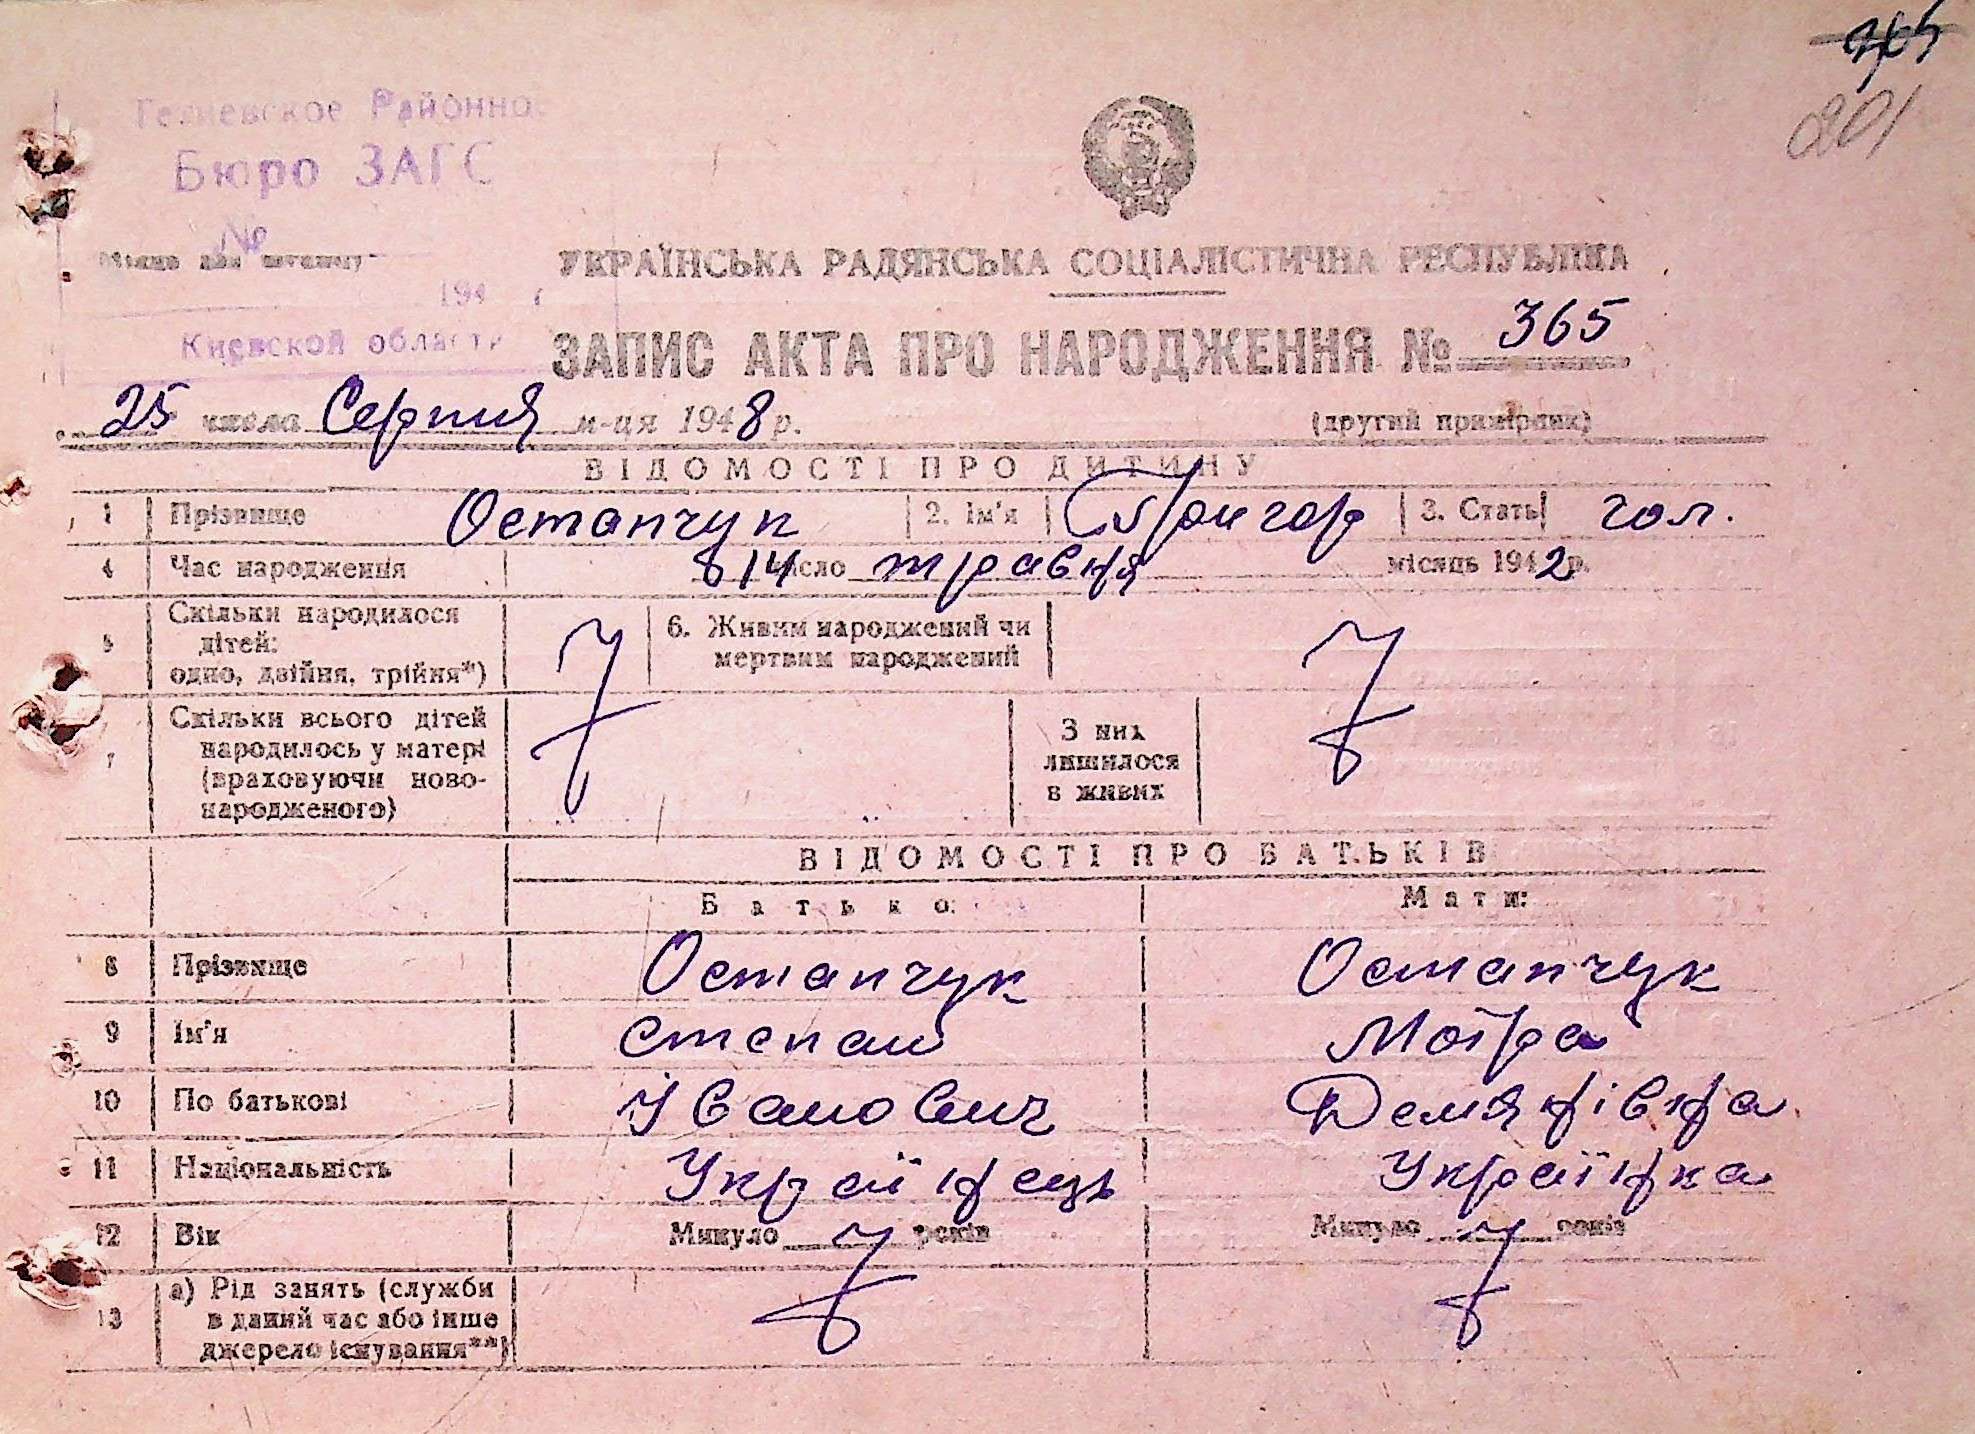 365
201
Районное
Бюро ЗАГС
№
194
Киевской области
УКРАЇНСЬКА РАДЯНСЬКА СОЦІАЛІСТИЧНА РЕСПУБЛІКА
ЗАПИС АКТА ПРО НАРОДЖЕННЯ № 365
25 числа Серпня м-ця 1948 р. (другий примірник)
ВІДОМОСТІ ПРО ДИТИНУ
1 Прізвище Остапчук 2. Ім'я Григор 3. Стать чол.
4 Час народження 14 число травня місяць 1942 р.
5 Скільки народилося дітей: одно, двійня, трійня*) 6. Живим народжений чи мертвим народжений
7 Скільки всього дітей народилось у матері (враховуючи новонародженого) З них лишилося в живих
ВІДОМОСТІ ПРО БАТЬКІВ
Батько: Мати:
8 Прізвище Остапчук Остапчук
9 Ім'я Степан Мотра
10 По батькові Іванович Демянівна
11 Національність Українець Українка
12 Вік Минуло років Минуло років
13 а) Рід занять (служби в даний час або інше джерело існування**)